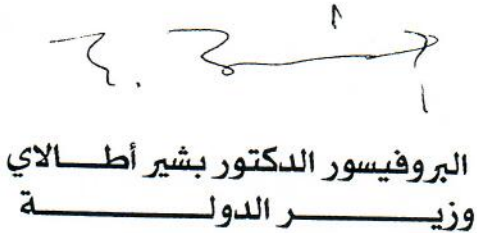 البروفيسور الدكتور بشير أطالاي
وزير الدولة